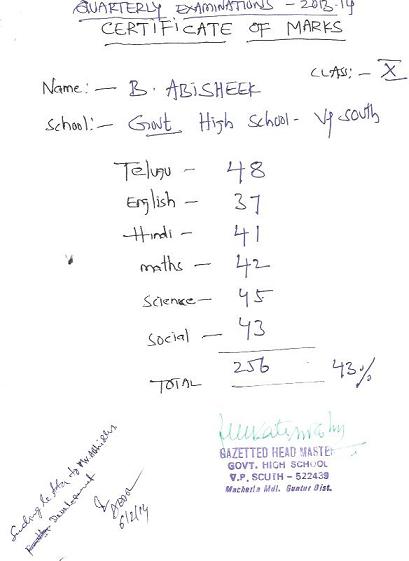 QUARTERLY EXAMINATIONS - 2013-14
CERTIFICATE OF MARKS
CLASS:- X
Name:- B. ABISHEEK
School:- Govt High School- V.P. South
Telugu - 48
English - 37
Hindi - 41
maths - 42
Science - 45
Social - 43
TOTAL 256 43%
GAZETTED HEAD MASTER
GOVT. HIGH SCHOOL
V.P. SOUTH - 522439
Macherla Mdl. Guntur Dist.
Development
6/2/14